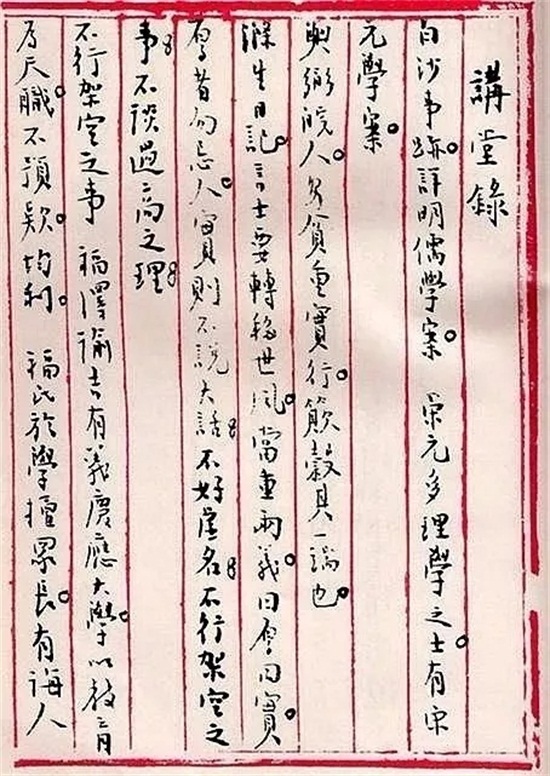 講堂錄
白沙事蹟。詳明儒學案。 宋元多理學之士。有宋
元學案。
與弼皖人。家貧重實行。簸穀其一端也。
滌生日記。言士要轉移世風。當重兩義曰厚曰實。
厚者勿忌人。實則不說大話。不好虛名。不行架空之
事。不談過高之理。
不行架空之事 福澤諭吉有義慶應大學。以教育
為天職。不預款。均利。 福氏於學擅眾長。有誨人